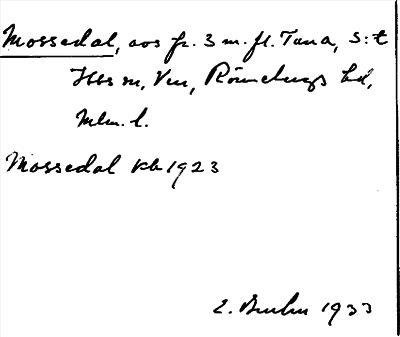 Mossedal, avs fr. 3 m. fl. Tuna, S:t
Ibbs sn, Ven, Rönnebergs hd,
Mlm. l.
Mossedal kb 1923
1933